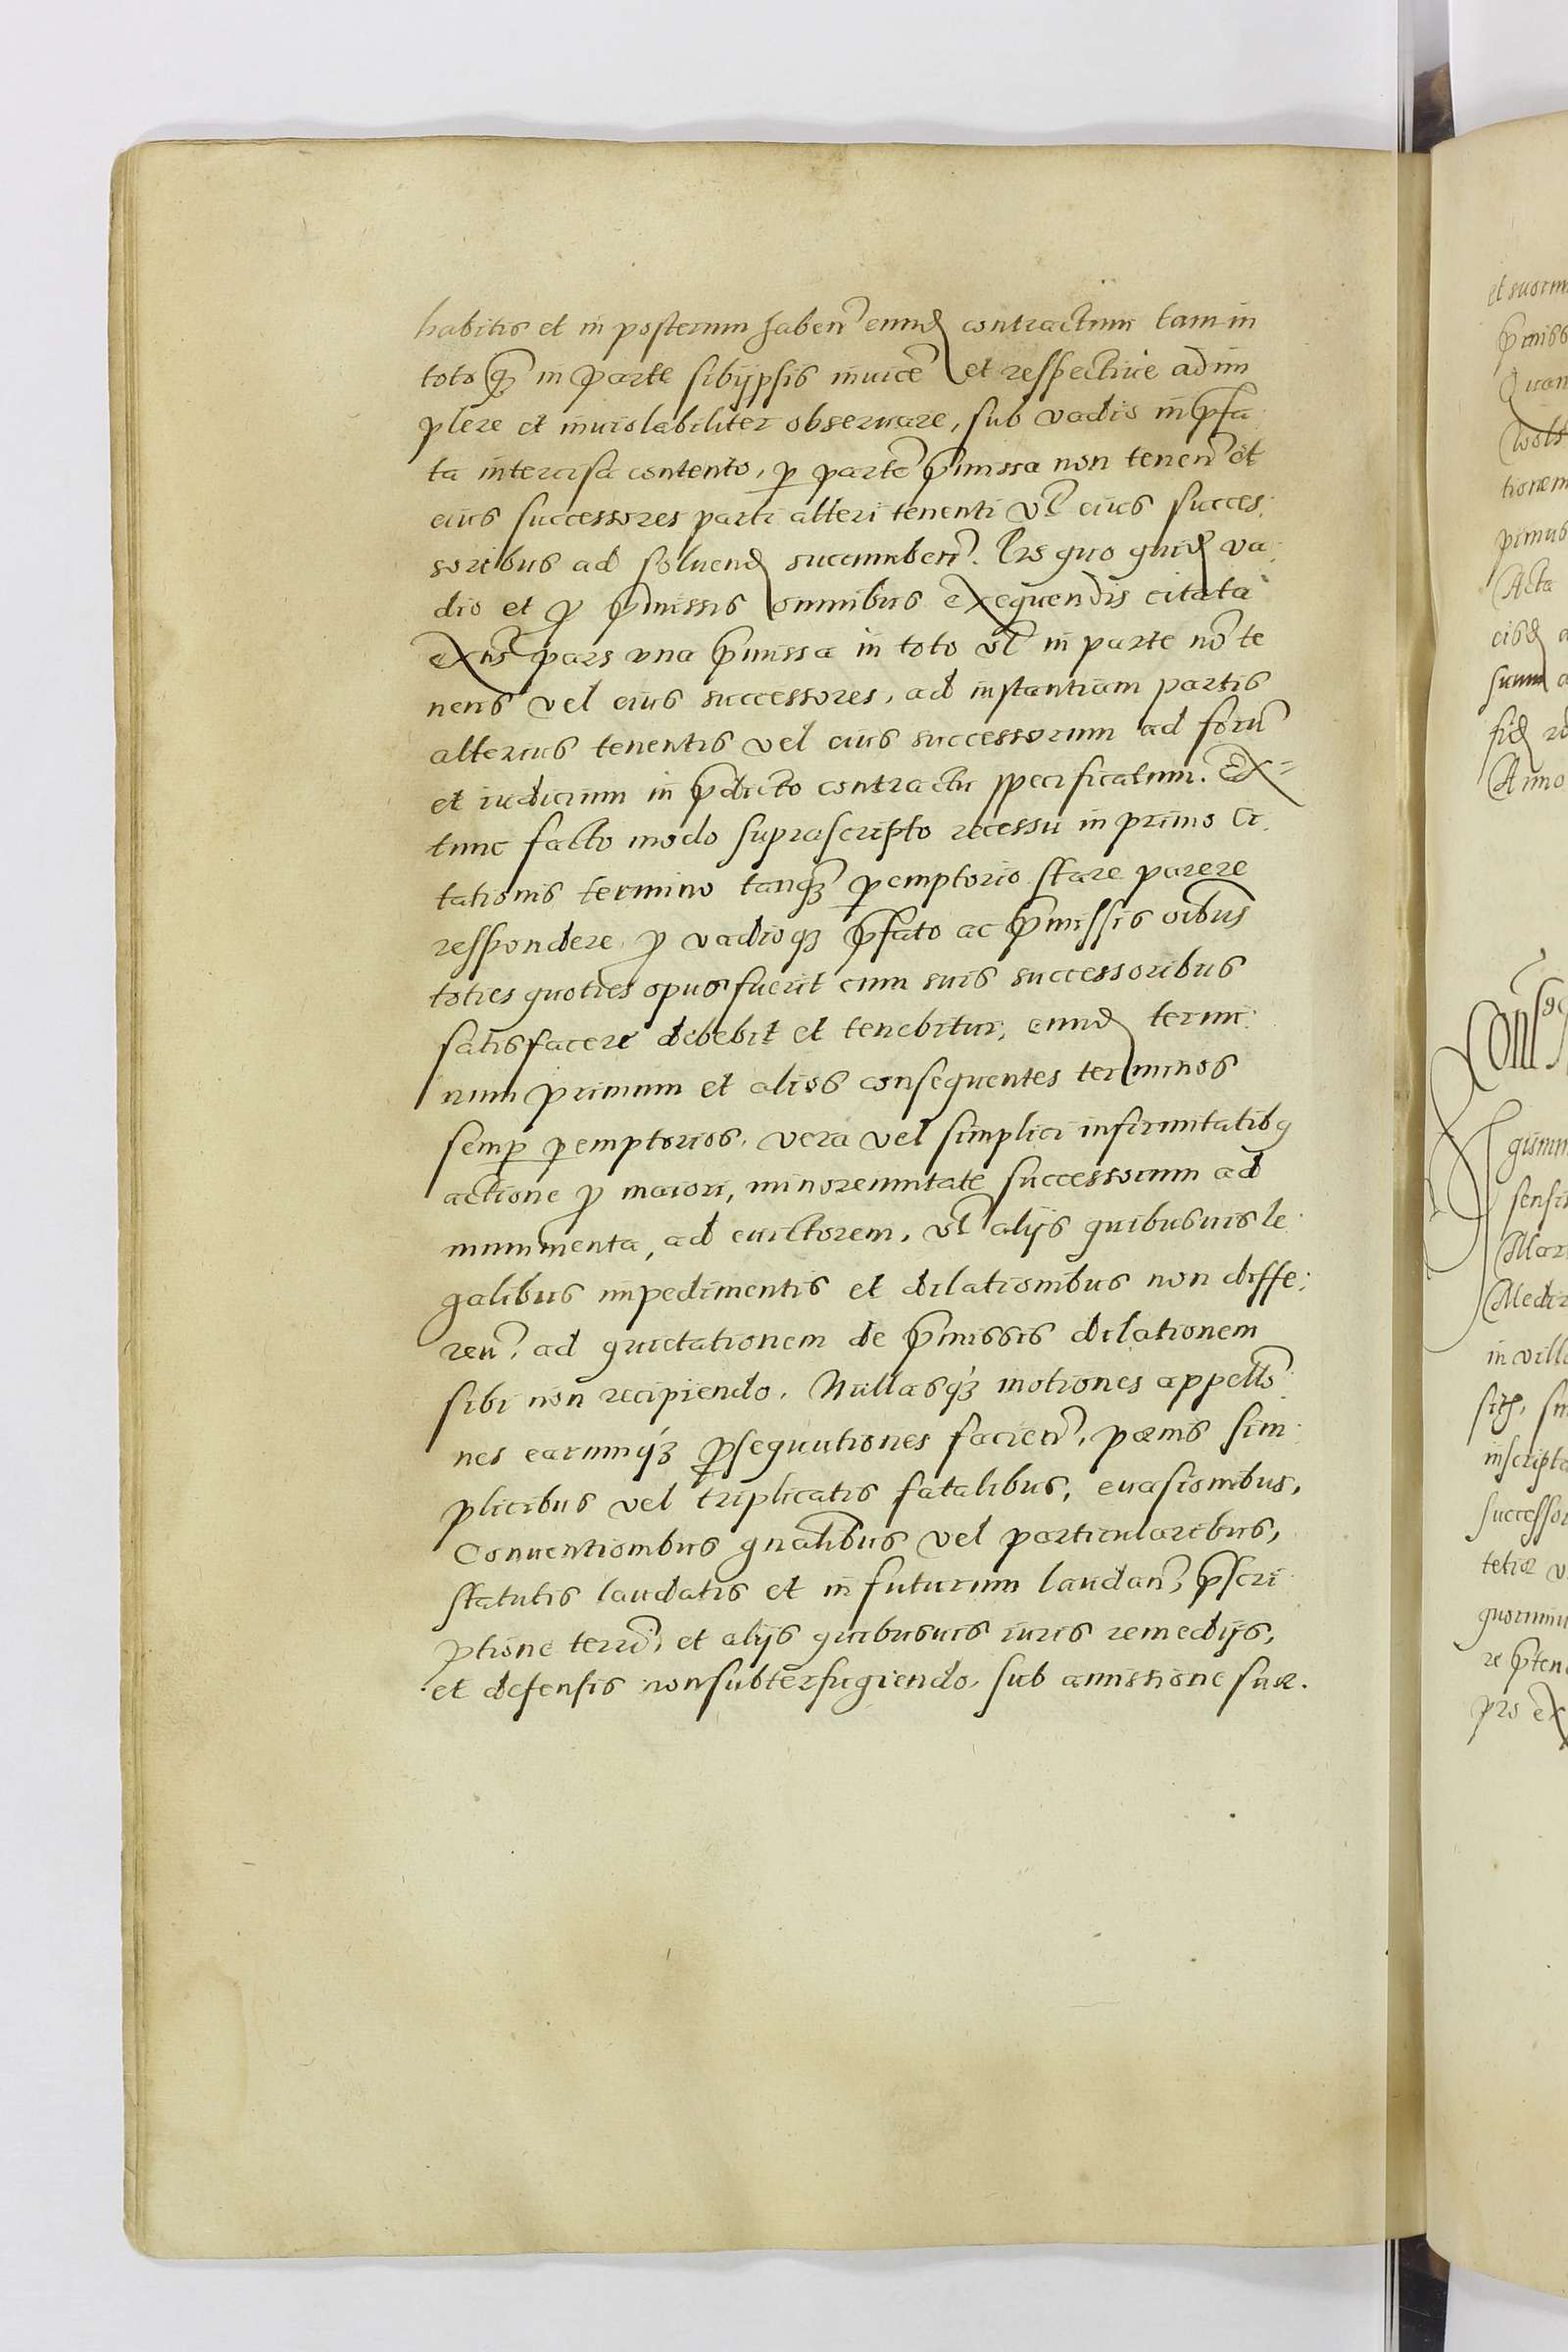 habitis et in posterum haben̄ eund contractum tam in
toto q̄ in parte sibijpsis inuicē et respectiue adim
plere et inuiolabiliter obseruare, sub vadio in p̄fa
ta intercisa contento, p̱ partē p̄missa non tenen̄ et
eius successores parti alteri tenenti vl̄ eius succes:
soribus ad soluend succumben̄. Pro quo quid va:
dio et p̱ p̄missis omnibus exequendis citata
exn̄s pars vna p̄missa in toto vl̄ in parte nō te
nens vel eius successores, ad instantiam partis
alterius tenentis vel eius successorum ad forū
et iudicium in p̄dicto contractu specificatum. Ex=
tunc facto modo suprascripto recessu in primo ci:
tationis termino tanq̄ p̱emptorio stare parere
respondere, p̱ vadioq3 p̄fato ac p̄missis oībus
toties quoties opus fuerit cum suis successoribus
satisfacere debebit et tenebitur, eund termi:
num primum et alios consequentes terminos
semp̱ p̱emptorios, vera vel simplici infirmitatibq
actione p̱ maiori, minorennitate successorum ad
munimenta, ad euictorem, vl̄ alijs quibusuis le:
galibus impedimentis et dilationibus non diffe:
ren̄, ad quietationem de p̄missis dilationem
sibi non recipiendo. Nullasq3 motiones appellō
nes earumq3 p̱sequutiones facien̄, pœnis sim:
plicibus vel triplicatis fatalibus, euasionibus,
Conuentionibus gnālibus vel particularibus,
statutis laudatis et in futurum laudan̄, p̄scri:
ptione terrī, et alijs quibusuis iuris remedijs,
et defensis non subterfugiendo, sub amissione suæ.
et suorum
p̄miss
tionem
pimus
Acta
Anno
Mar
in villa
inscripta
successor
quorum
pro ex